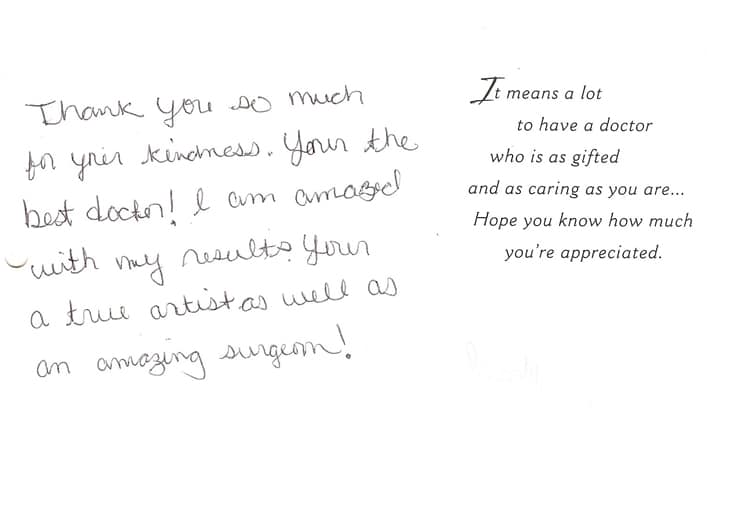 Thank you so much
for your kindness. Your the
best doctor! I am amazed
with my results. Your
a true artist as well as
an amazing surgeon!
It means a lot
to have a doctor
who is as gifted
and as caring as you are...
Hope you know how much
you're appreciated.